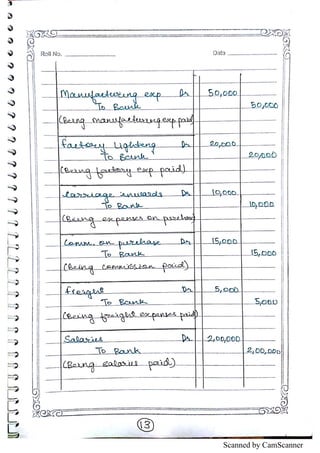 Roll No. Date
Manufacturing exp Dr 50,000
To Bank 50,000
(Being manufacturing exp paid)
Factory Lighting Dr 20,000
To Bank 20,000
(Being factory exp paid)
Carriage inwards Dr 10,000
To Bank 10,000
(Being expenses on purchase)
Comm. on purchase Dr 15,000
To Bank 15,000
(Being commission paid)
freight Dr 5,000
To Bank 5,000
(Being freight expenses paid)
Salaries Dr. 2,00,000
To Bank 2,00,000
(Being salaries paid)
13
Scanned by CamScanner